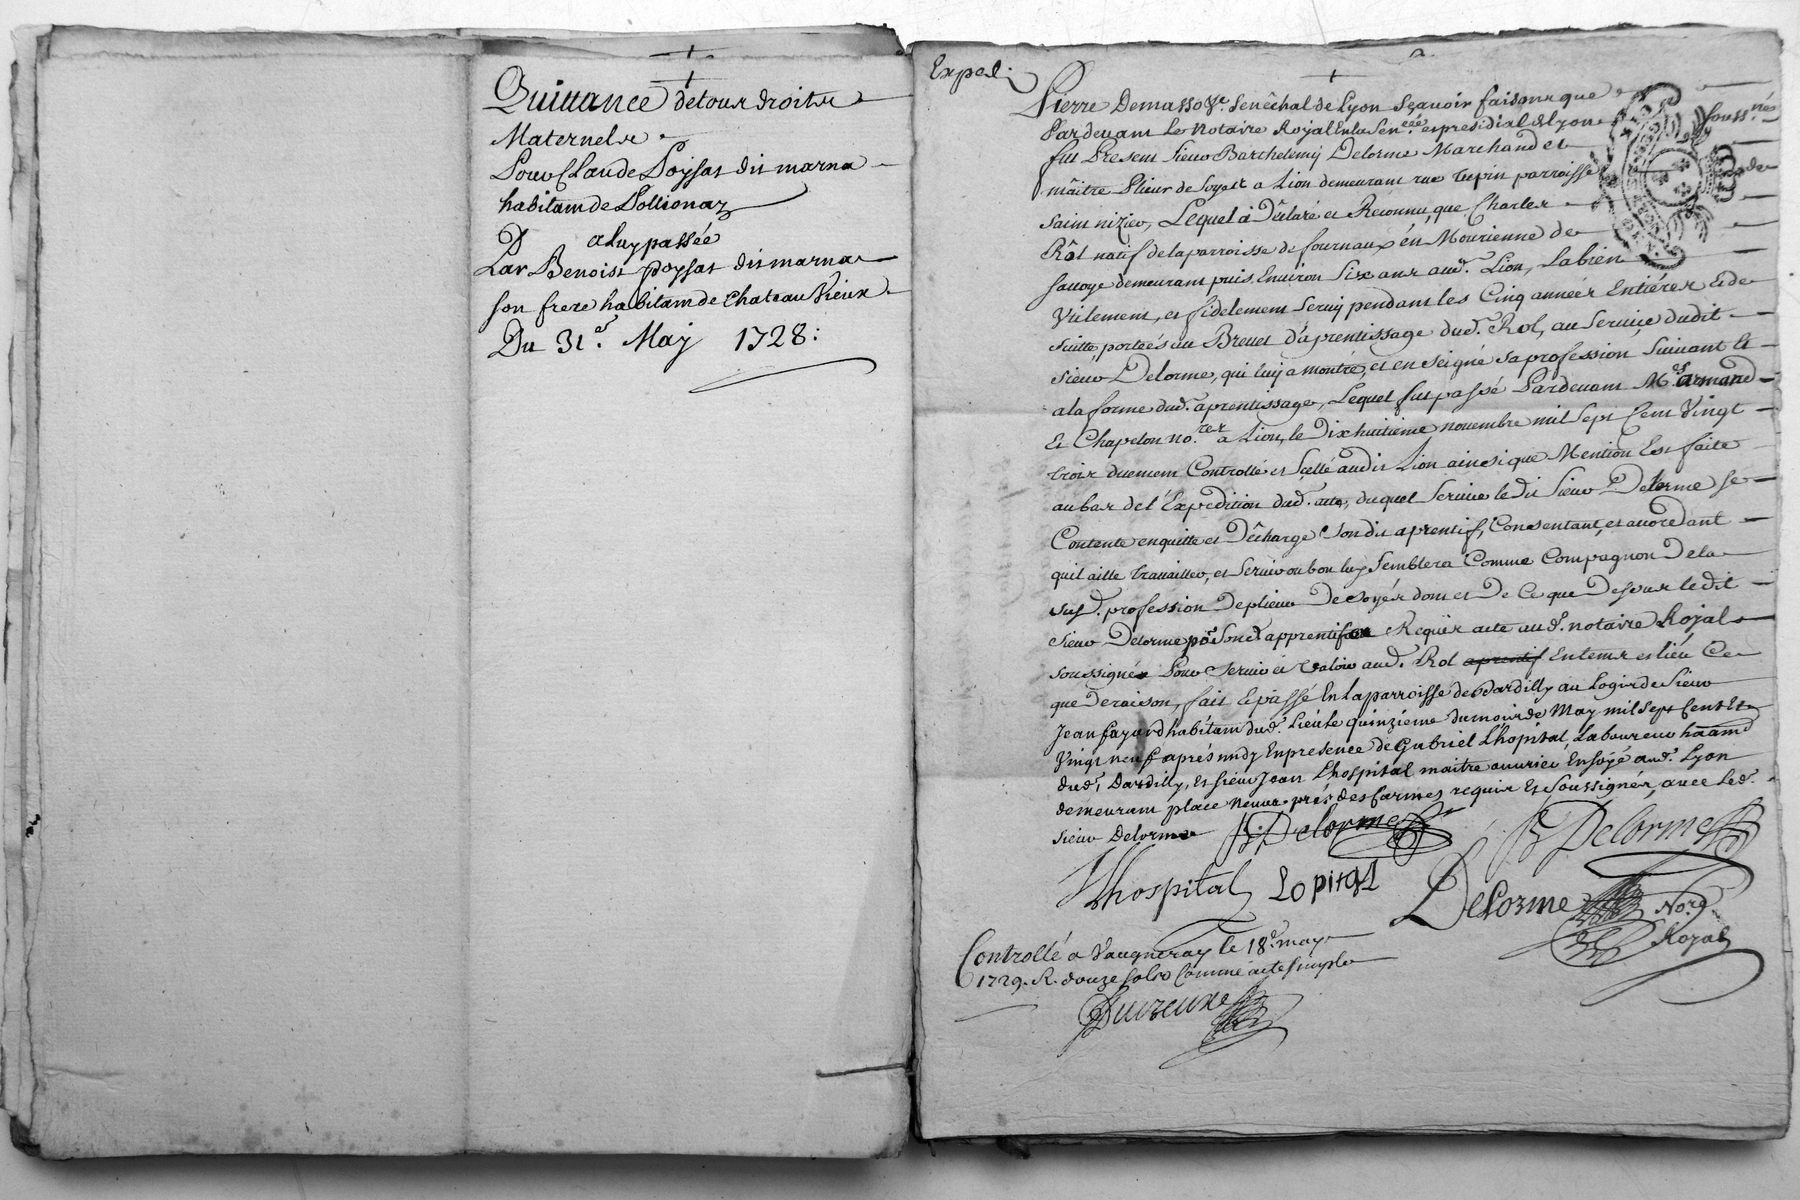 Quittance de tous droits
Maternels
Pour Claude Poysat dit marna
habitant de Pollionay
a luy passée
Par Benoist poysat dit marna
son frere habitant de Chateau Vieux
Du 31e. May 1728:
Exped.
Pierre Demasso Gr. Senêchal de Lyon Sçavoir faisons que
Pardevant Le Notaire Royal En la Sen.ceé et presidial de Lyon souss.né
fut Present Sieur Barthelemy Delorme Marchand et
mâitre Plieur de Soyes a Lion demeurant rue tupin parroisse de
saint nizier, Lequel à Dêclaré et Reconnu, que Charles
Rôl natif de la parroisse de fourneaux én Mourienne de
savoye demeurant puis Environ Six ans aud. Lion, La bien
Vtilement, et fidelement Servy pendant les Cinq années Entiéres et de
suitte, porteés au Brevet d'aprentissage dud. Rol, au Service dudit
sieur Delorme, qui luy a montré, et enseigné sa profession Suivant et
a la forme dud. aprentissage, Lequel fut passé Pardevant M.es armand
Et Chapelon no.res a Lion, le Dix huitieme novembre mil Sept Cent Vingt
trois duement Controllé et Scellé audit Lion ainsi que Mention Est faite
au bas de l'Expedition dud. acte, duquel Service le dit Sieur Delorme Se
Contente en quitte et Dêcharge Son dit aprentif, Consentant, et accordant
quil aille travailler, et Servir ou bon luy Semblera Comme Compagnon De la
susd. profession De plieur De Soyés dont et De Ce que Dessus le dit
sieur Delorme po.r Son d. apprentif Requis acte aud. notaire Royal
soussigné Pour Servir et valoir aud. Rol aprentif En tems et lieu Ce
que De raison, fait & passé En la parroisse de Dardilly au Logis de Sieur
Jean fayard habitant dud. Lieu Le quinzieme du mois de May mil Sept Cent Et
Vingt neuf aprés midy En presence de Gabriel L'hopital, Laboureur
dud. Dardilly, et sieur Jean Lhospital maitre ouvrier En soÿe aud. Lyon
demeurant place neuve prés des Carmes requis Et Soussignés avec Led.
sieur Delorme B: Delorme
B Delorme
Lhospital Lopital
Delorme No.re
Royal
Controllé a Vaugneray le 18.e may
1729. R. douze sols Comme acte simple